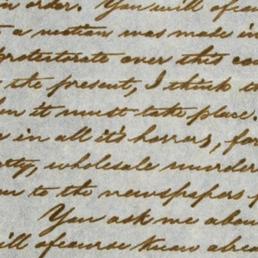 in order. You will of cour
t a motion was made in
protectorate over this cou
the present, I think th
en it must take place.
e in all it's horrors, for
rty, wholesale murder
to the newspapers f
You ask me abou
will ofcourse know alrea